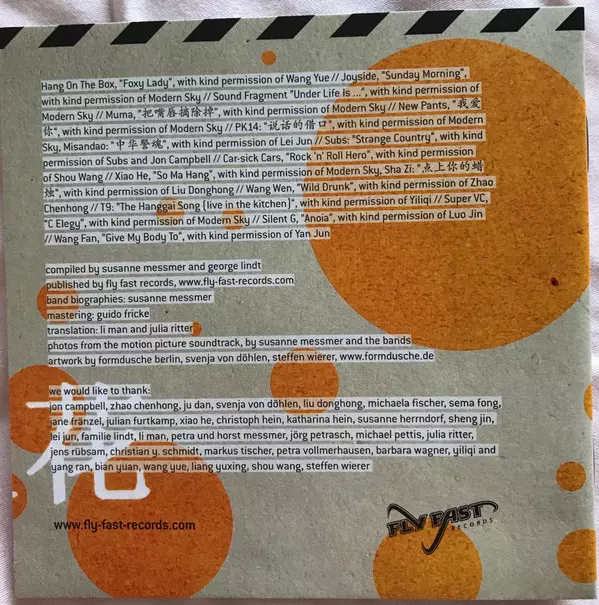 Hang On The Box, "Foxy Lady", with kind permission of Wang Yue // Joyside, "Sunday Morning",
with kind permission of Modern Sky // Sound Fragment "Under Life Is ...", with kind permission of
Modern Sky // Muma, "把嘴唇摘除掉", with kind permission of Modern Sky // New Pants, "我爱
你", with kind permission of Modern Sky // PK14: "说话的借口", with kind permission of Modern
Sky, Misandao: "中华警魂", with kind permission of Lei Jun // Subs: "Strange Country", with kind
permission of Subs and Jon Campbell // Car-sick Cars, "Rock 'n' Roll Hero", with kind permission
of Shou Wang // Xiao He, "So Ma Hang", with kind permission of Modern Sky, Sha Zi: "点上你的蜡
烛", with kind permission of Liu Donghong // Wang Wen, "Wild Drunk", with kind permission of Zhao
Chenhong // T9: "The Hanggai Song (live in the kitchen)", with kind permission of Yiliqi // Super VC,
"C Elegy", with kind permission of Modern Sky // Silent G, "Anoia", with kind permission of Luo Jin
// Wang Fan, "Give My Body To", with kind permission of Yan Jun
compiled by susanne messmer and george lindt
published by fly fast records, www.fly-fast-records.com
band biographies: susanne messmer
mastering: guido fricke
translation: li man and julia ritter
photos from the motion picture soundtrack, by susanne messmer and the bands
artwork by formdusche berlin, svenja von döhlen, steffen wierer, www.formdusche.de
we would like to thank:
jon campbell, zhao chenhong, ju dan, svenja von döhlen, liu donghong, michaela fischer, sema fong,
jane fränzel, julian furtkamp, xiao he, christoph hein, katharina hein, susanne herrndorf, sheng jin,
lei jun, familie lindt, li man, petra und horst messmer, jörg petrasch, michael pettis, julia ritter,
jens rübsam, christian y. schmidt, markus tischer, petra vollmerhausen, barbara wagner, yiliqi and
yang ran, bian yuan, wang yue, liang yuxing, shou wang, steffen wierer
花
www.fly-fast-records.com
FLY FAST
RECORDS